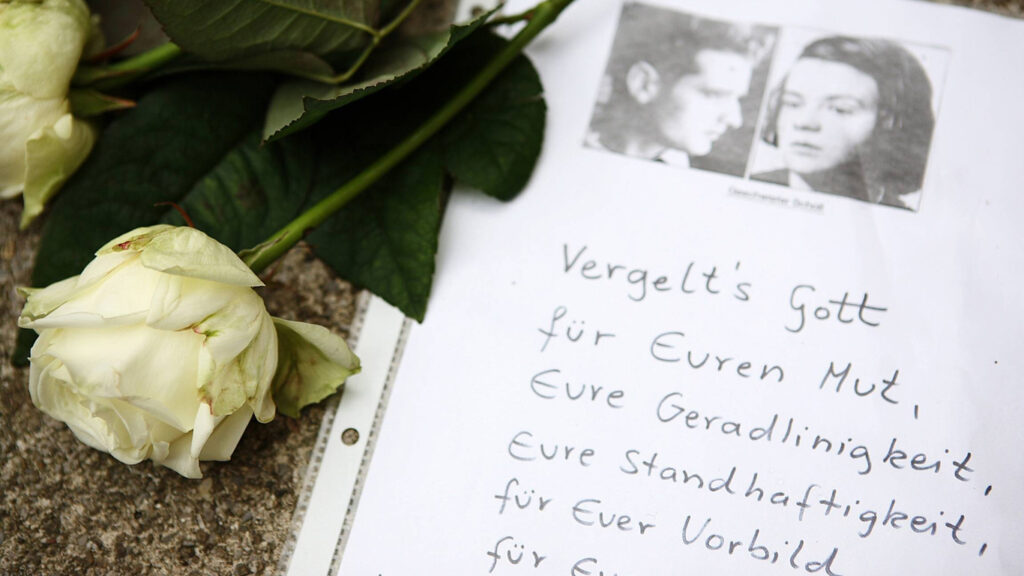 Geschwister Scholl
Vergelt's Gott
für Euren Mut,
Eure Geradlinigkeit,
Eure Standhaftigkeit,
für Euer Vorbild
für